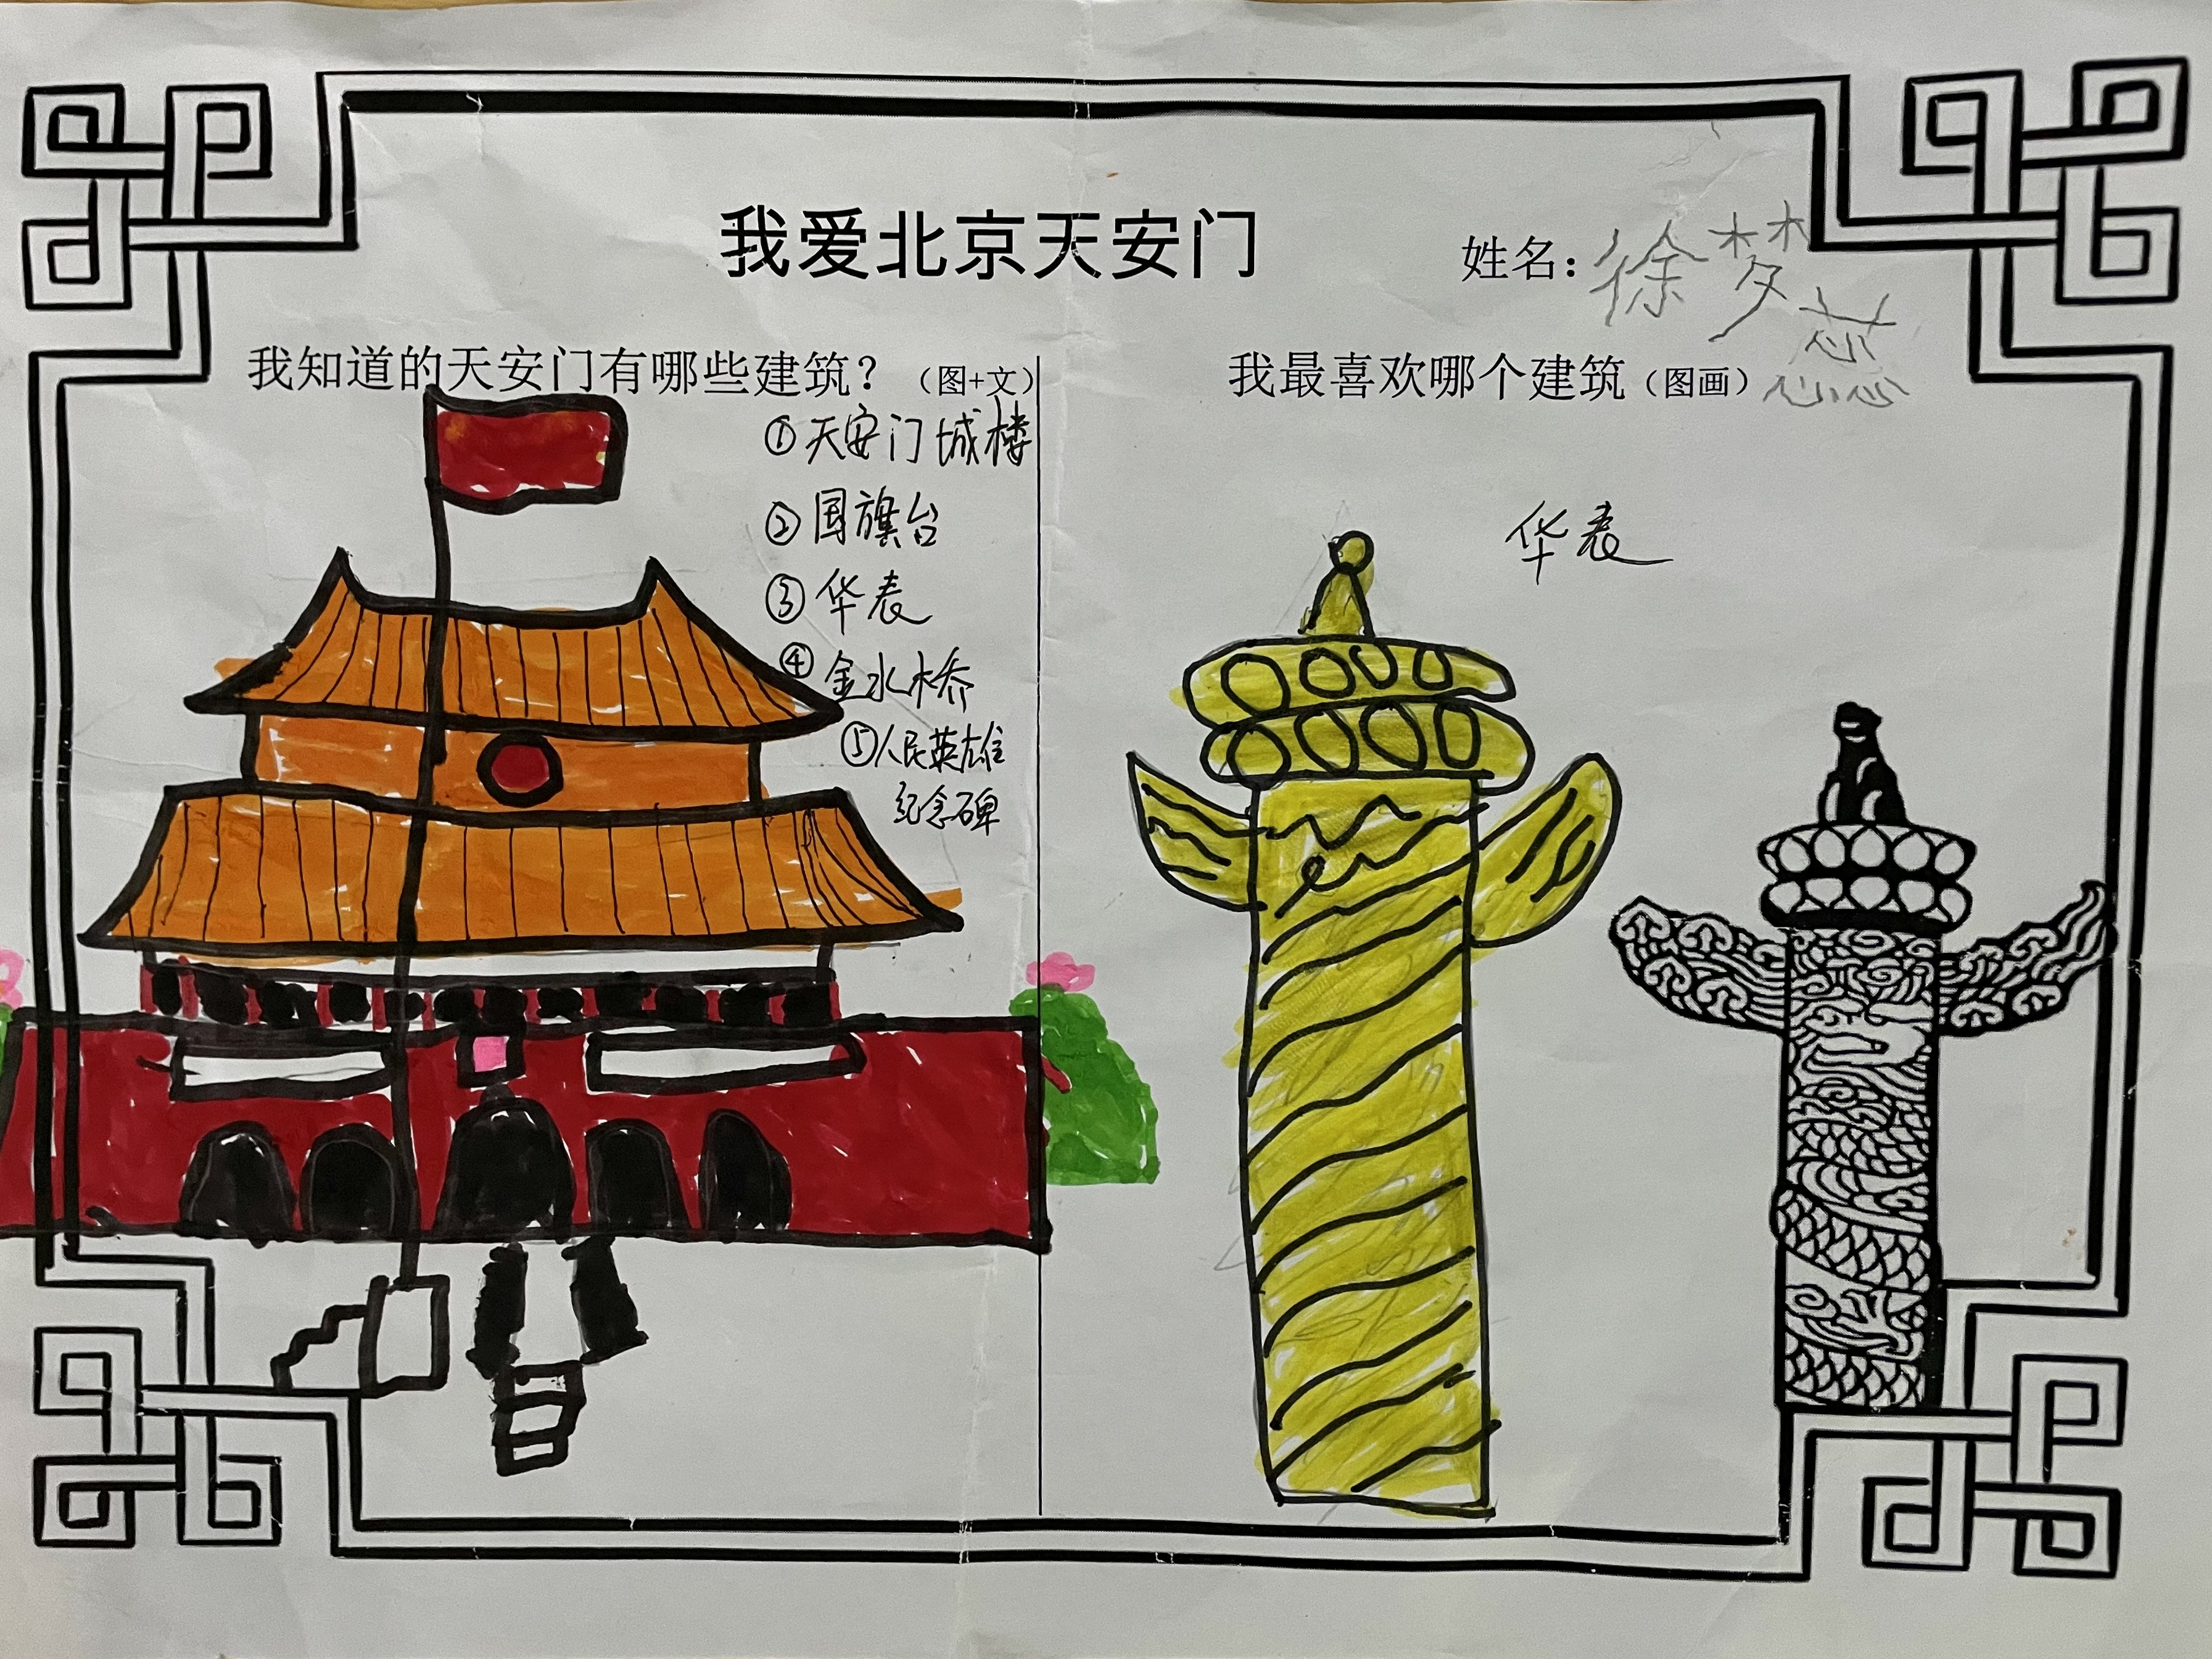 我爱北京天安门
姓名：徐梦蕊
我知道的天安门有哪些建筑？（图+文）
①天安门城楼
②国旗台
③华表
④金水桥
⑤人民英雄
纪念碑
我最喜欢哪个建筑（图画）
华表